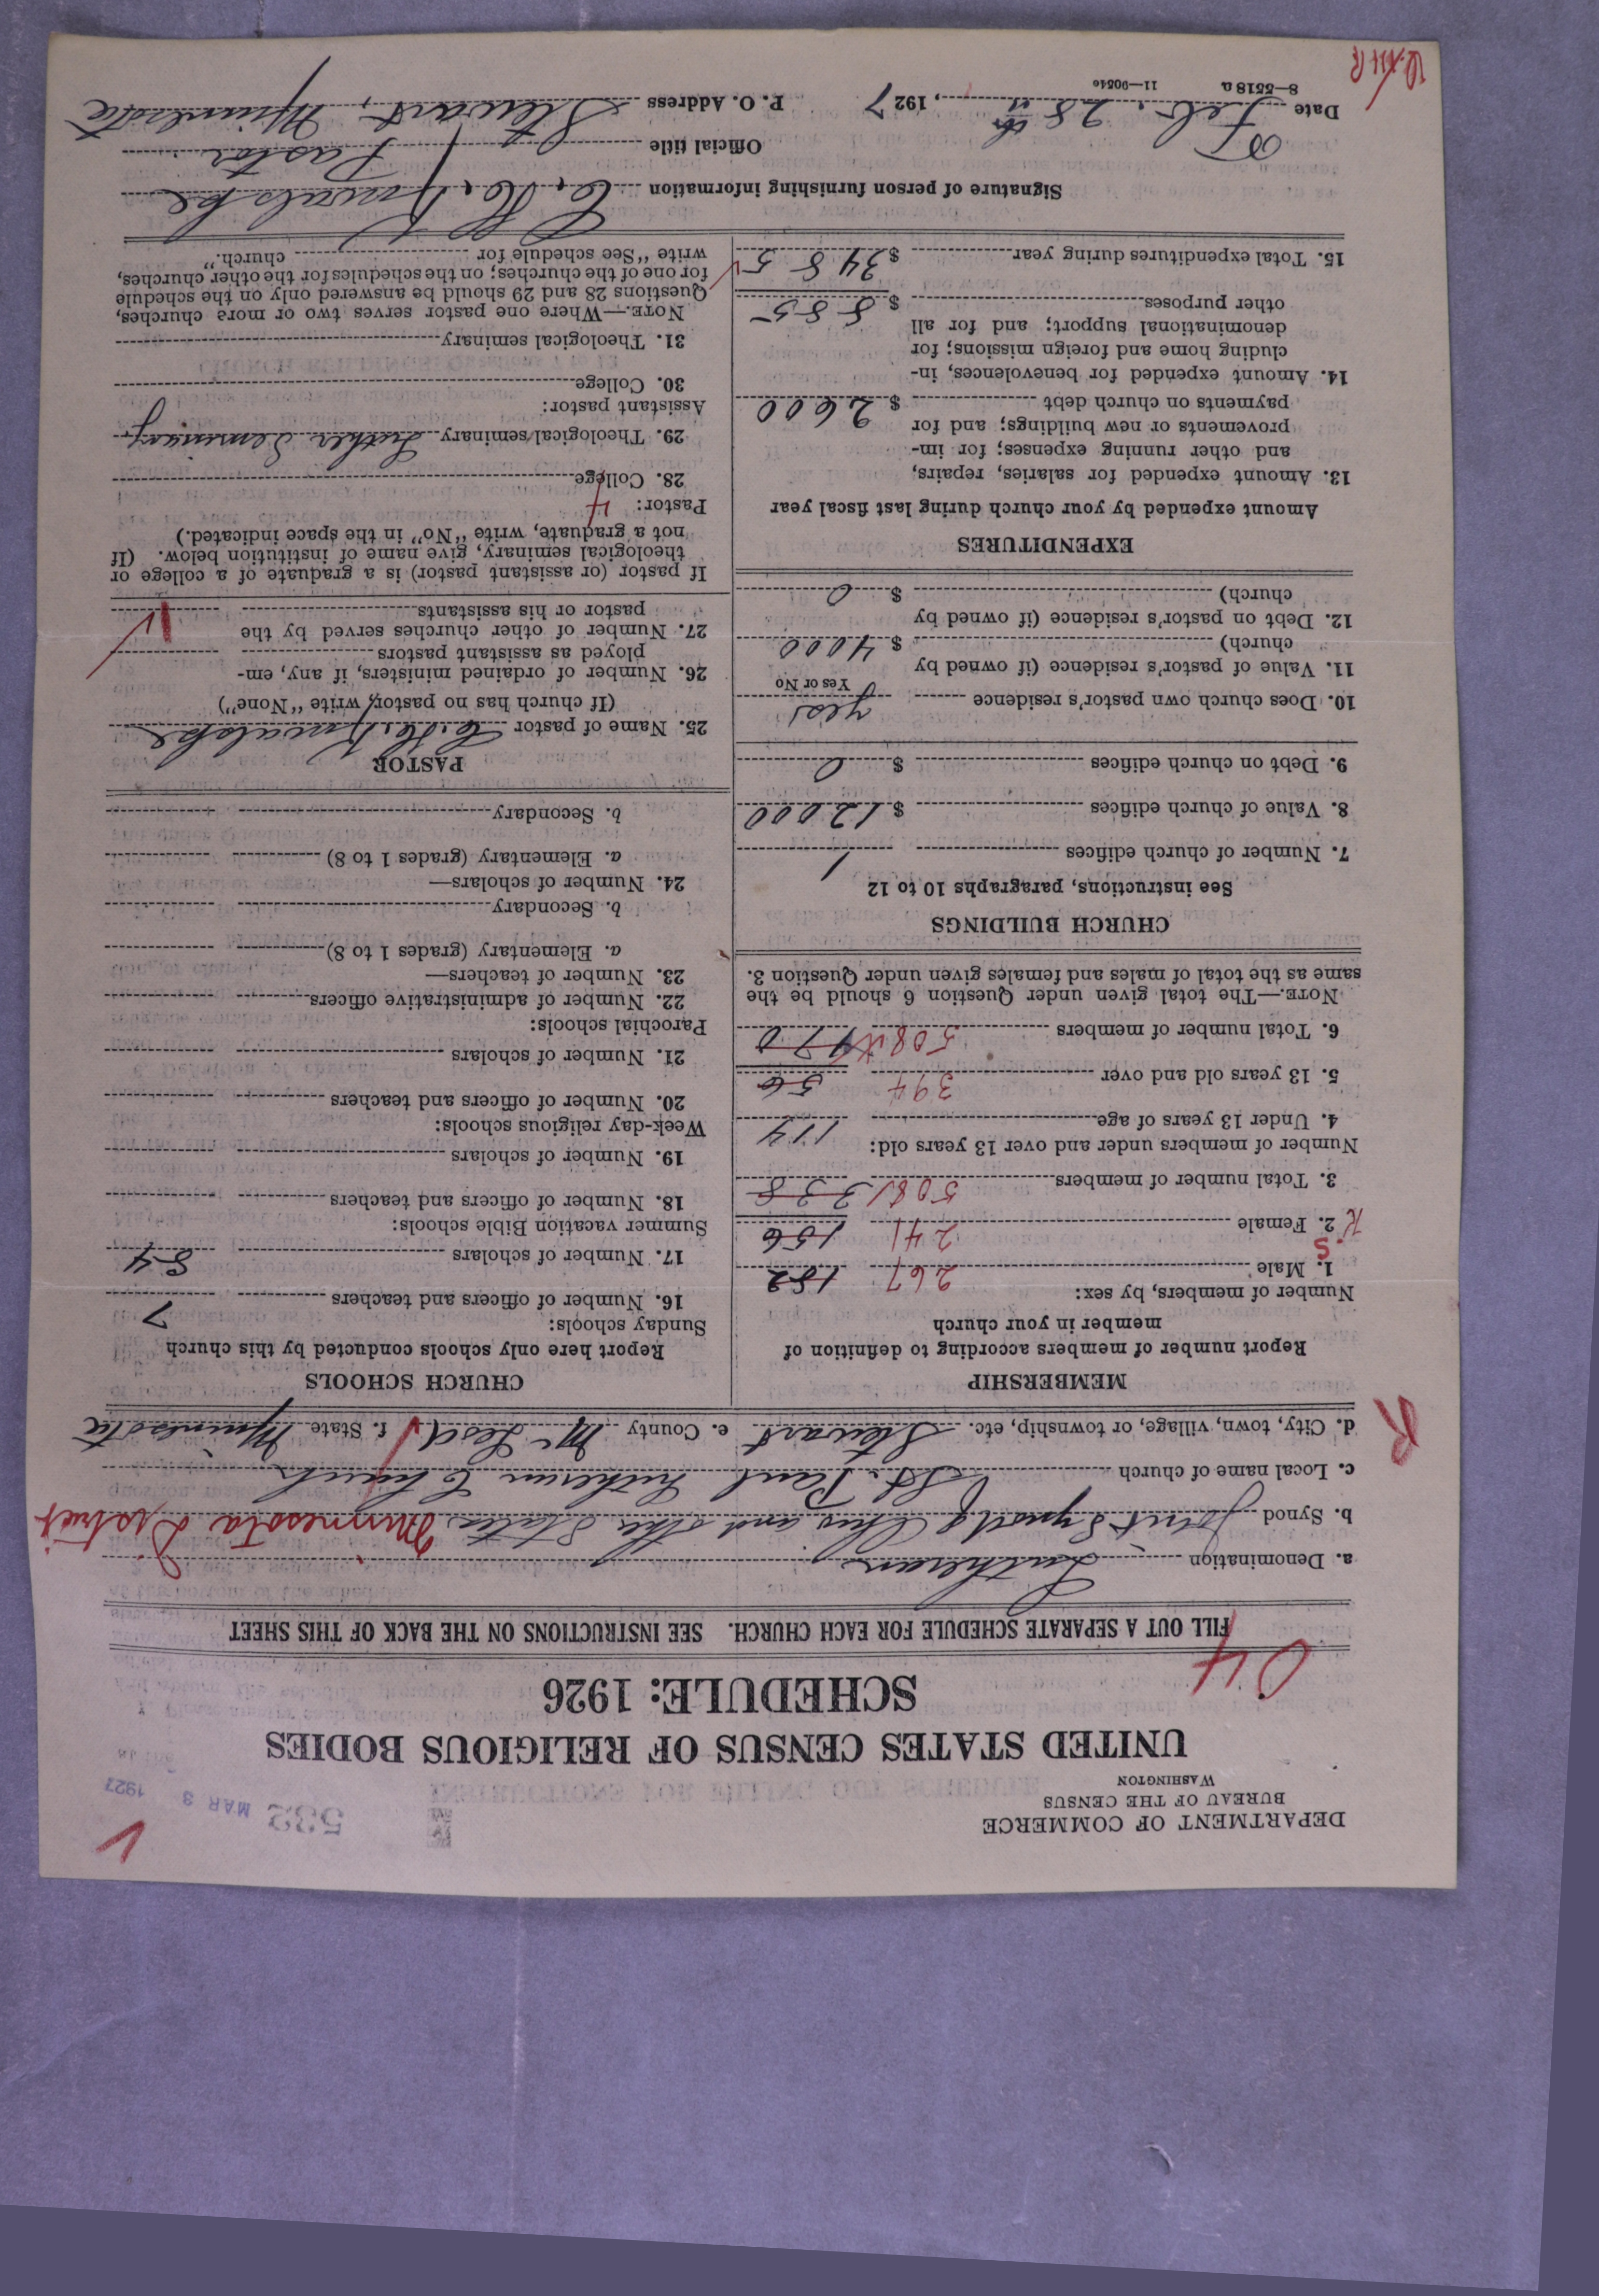 DEPARTMENT OF COMMERCE
BUREAU OF THE CENSUS
WASHINGTON
532 MAR 3 1927
UNITED STATES CENSUS OF RELIGIOUS BODIES
SCHEDULE: 1926
04
FILL OUT A SEPARATE SCHEDULE FOR EACH CHURCH. SEE INSTRUCTIONS ON THE BACK OF THIS SHEET
a. Denomination Lutheran
b. Synod Joint Synod of Ohio and other States Minnesota District
c. Local name of church St. Paul Lutheran Church
d. City, town, village, or township, etc. Stewart e. County McLeod f. State Minnesota
R
MEMBERSHIP
Report number of members according to definition of
member in your church
Number of members, by sex:
1. Male 267 182
S
2. Female 241 156
3. Total number of members 508 338
Number of members under and over 13 years old:
4. Under 13 years of age 114
5. 13 years old and over 394 56
6. Total number of members 508 170
NOTE.—The total given under Question 6 should be the
same as the total of males and females given under Question 3.
CHURCH BUILDINGS
See instructions, paragraphs 10 to 12
7. Number of church edifices 1
8. Value of church edifices $ 12000
9. Debt on church edifices $ 0
10. Does church own pastor's residence yes
Yes or No
11. Value of pastor's residence (if owned by
church) $ 4000
12. Debt on pastor's residence (if owned by
church) $ 0
EXPENDITURES
Amount expended by your church during last fiscal year
13. Amount expended for salaries, repairs,
and other running expenses; for im-
provements or new buildings; and for
payments on church debt $ 2600
14. Amount expended for benevolences, in-
cluding home and foreign missions; for
denominational support; and for all
other purposes $ 885
15. Total expenditures during year $ 3485
CHURCH SCHOOLS
Report here only schools conducted by this church
Sunday schools:
16. Number of officers and teachers 7
17. Number of scholars 84
Summer vacation Bible schools:
18. Number of officers and teachers
19. Number of scholars
Week-day religious schools:
20. Number of officers and teachers
21. Number of scholars
Parochial schools:
22. Number of administrative officers
23. Number of teachers—
a. Elementary (grades 1 to 8)
b. Secondary
24. Number of scholars—
a. Elementary (grades 1 to 8)
b. Secondary
PASTOR
25. Name of pastor
(If church has no pastor, write "None")
26. Number of ordained ministers, if any, em-
ployed as assistant pastors
27. Number of other churches served by the
pastor or his assistants
If pastor (or assistant pastor) is a graduate of a college or
theological seminary, give name of institution below. (If
not a graduate, write "No" in the space indicated.)
Pastor: 4
28. College
29. Theological seminary Luther Seminary
Assistant pastor:
30. College
31. Theological seminary
NOTE.—Where one pastor serves two or more churches,
Questions 28 and 29 should be answered only on the schedule
for one of the churches; on the schedules for the other churches,
write "See schedule for church."
Signature of person furnishing information
Official title Pastor
Date Feb. 28th, 1927 P. O. Address Stewart, Minnesota
8—5518a 11—9054c